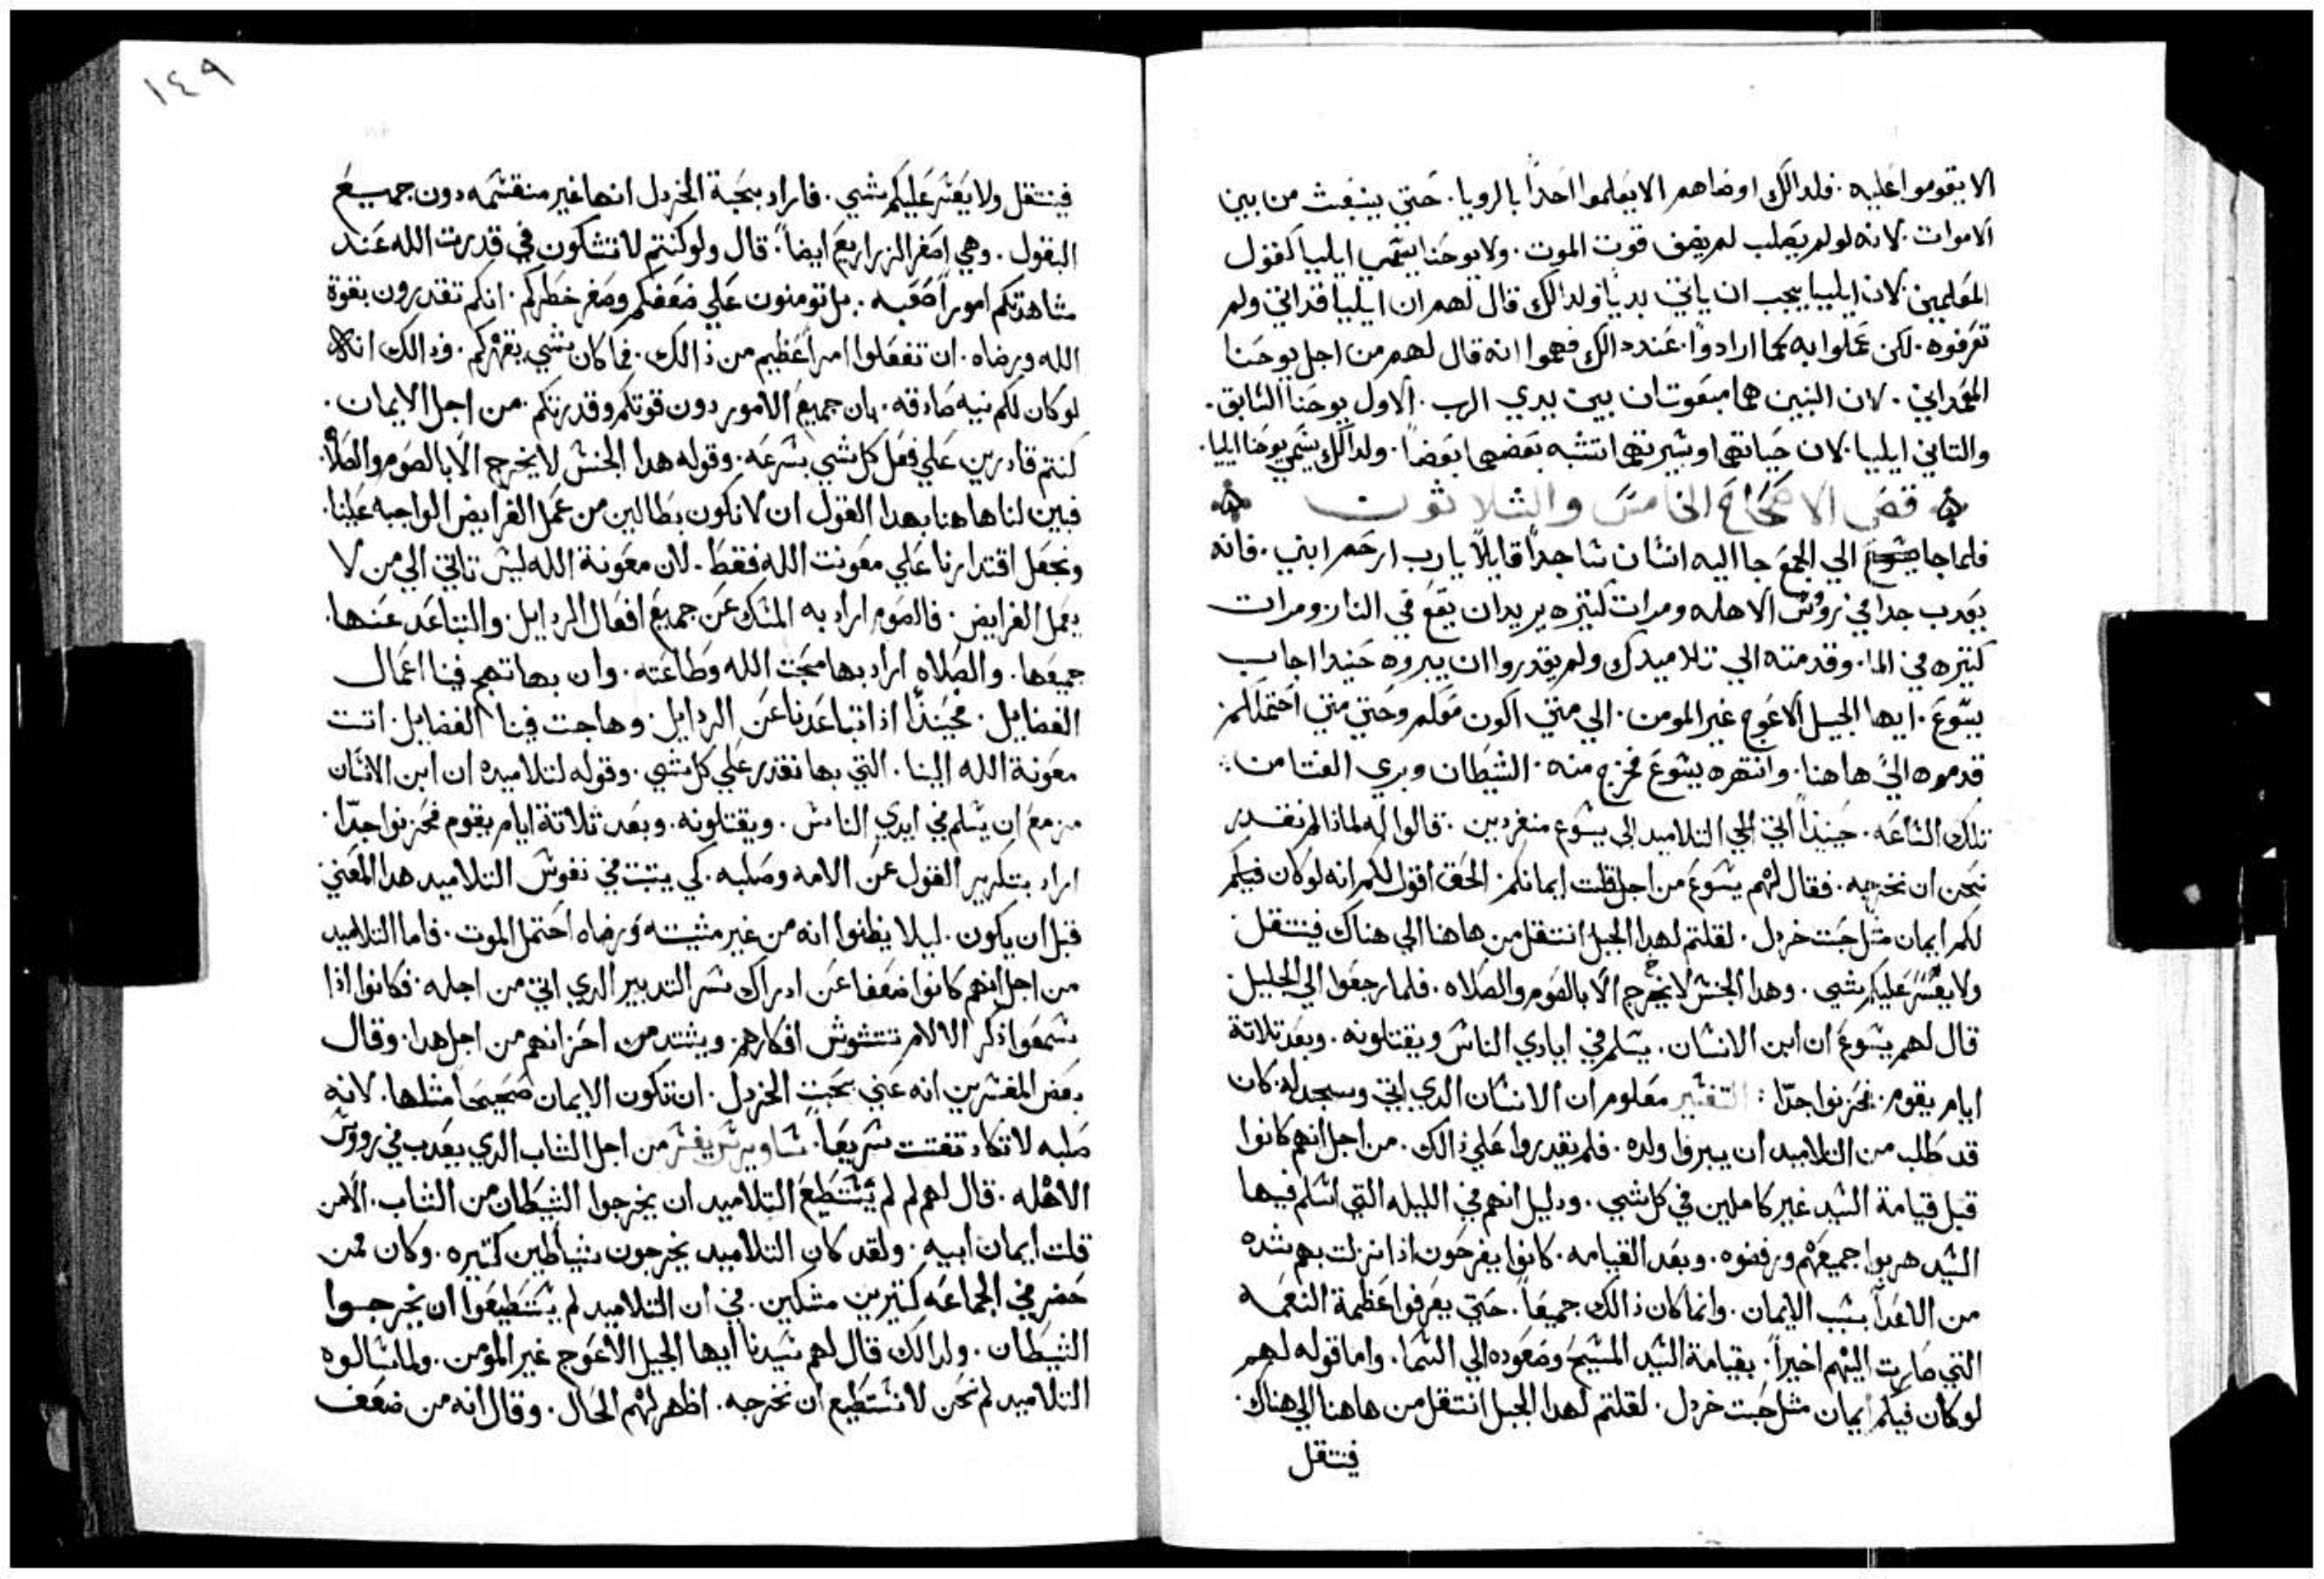 الا يقوموا عليه. فلدالك اوصاهم الا يعلموا احداً بالرويا. حتي ينبعث من بين
الاموات. لانه لو لم يصلب لم يضعف قوت الموت. ولا يوحنا يسمي ايليا كقول
المعلمين. لان ايليا يجب ان ياتي بديا ولدالك قال لهم ان ايليا قد اتي ولم
تعرفوه. لكن عملوا به كما ارادوا. عند دالك فهموا انه قال لهم من اجل يوحنا
المعمداني. لان اتنين هما مبعوتان بين يدي الرب. الاول يوحنا السابق.
والتاني ايليا. لان حياتهما وسيرتهما تشبه بعضهما بعضاً. ولدالك يسمي يوحنا ايليا.
قصى الاصحاح الخامس والثلاثون
فلما جا يسوع الي الجمع جا اليه انسان ساجداً قايلاً يارب ارحم ابني. فانه
يعدب جدا في رووس الاهله ومرات كتيره يريد ان يقع في النار ومرات
كتيره في الما. وقدمته الي تلاميدك ولم يقدروا ان يبروه حنيدا اجاب
يسوع. ايها الجيل الاعوج غير المومن. الي متي اكون معكم وحتي متي احتملكم.
قدموه اليّ هاهنا. وانتهره يسوع فخرج منه. الشيطان وبري الفتا من
تلك الساعه. حينيذاً اتي الي التلاميد الي يسوع منفردين. قالوا له لماذا لم نقدر
نحن ان نخرجه. فقال لهم يسوع من اجل قلت ايمانكم. الحق اقول لكم انه لو كان فيكم
لكم ايمان مثل حبت خردل. لقلتم لهدا الجبل انتقل من هاهنا الي هناك فينتقل
ولا يعسر عليكم شي. وهدا الجنس لا يخرج الا بالصوم والصلاه. فلما رجعوا الي الجليل
قال لهم يسوع ان ابن الانسان. يسلم في ايادي الناس ويقتلونه. وبعد تلاتة
ايام يقوم. فحزنوا جدّا: التفسير معلوم ان الانسان الدي اتي وسجد له. كان
قد طلب من التلاميد ان يبروا ولده. فلم يقدروا علي ذالك. من اجل انهم كانوا
قبل قيامة السيد غير كاملين في كل شي. ودليل انهم في الليله التي اسلم فيها
السيد هربوا جميعهم ورفضوه. وبعد القيامه. كانوا يفرحون اذا نزلت بهم شده
من الاعدآ بسبب الايمان. وانما كان ذالك جميعاً. حتي يعرفوا عظمة النعمه
التي صارت اليهم اخيراً. بقيامة السيد المسيح وصعوده الي السما. واما قوله لهم
لو كان فيكم ايمان مثل حبت خردل. لقلتم لهدا الجبل انتقل من هاهنا الي هناك.
فينتقل
١٤٩
فينتقل ولا يعسر عليكم شي. فاراد بحبة الخردل انها غير منقسمه دون جميع
البقول. وهي اصغر الزراريع ايضاً. قال ولو كنتم لا تشكون في قدرت الله عند
مشاهدتكم اموراً صعبه. بل تومنون علي ضعفكم وصغر خطركم. انكم تقدرون بقوة
الله ورضاه. ان تفعلوا امراً عظيم من ذالك. فما كان شي يقهركم. ودالك انه
لو كان لكم نيه صادقه. بان جميع الامور دون قوتكم وقدرتكم. من اجل الايمان.
كنتم قادرين علي فعل كل شي بسرعه. وقوله هدا الجنس لا يخرج الا بالصوم والصلاه
فبين لنا هاهنا بهدا القول ان لا نكون بطالين من عمل الفرايض الواجبه علينا.
ونجعل اقتدارنا علي معونت الله فقط. لان معونة الله ليس تاتي الي من لا
يعمل الفرايض. فالصوم اراد به المسك عن جميع افعال الردايل. والتباعد عنها.
جميعها. والصلاه اراد بها محبت الله وطاعته. وان بها تهيج فينا اعمال
الفضايل. فحينيذاً اذا تباعدنا عن الردايل. وهاجت فينا الفضايل. اتت
معونة الله الينا. التي بها نقدر علي كل شي. وقوله لتلاميده ان ابن الانسان
مزمع ان يسلم في ايدي الناس. ويقتلونه. وبعد ثلاثة ايام يقوم فحزنوا جدّا.
اراد بتكرير القول عن الامه وصلبه. كي يتبت في نفوس التلاميد هدا المعني
قبل ان يكون. ليلا يظنوا انه من غير مشيته ورضاه احتمل الموت. فاما التلاميد
من اجل انهم كانوا ضعفا عن ادراك سر التدبير الدي اتي من اجله. فكانوا اذا
سمعوا ذكر الالام تتشوش افكارهم. ويشتد احزانهم من اجل هدا. وقال
بعض المفسرين انه عني بحبت الخردل. ان تكون الايمان صحيحاً مثلها. لانه
صلبه لا تكاد تفتت سريعاً. ساويرس يفسر من اجل الشاب الدي يعدب في رووس
الاهله. قال لهم لم لم يستطيع التلاميد ان يخرجوا الشيطان من الشاب. الا من
قلت ايمان ابيه. ولقد كان التلاميد يخرجون شياطين كتيره. وكان ممن
حضر في الجماعه كتيرين مشككين. في ان التلاميد لم يستطيعوا ان يخرجوا
الشيطان. ولدالك قال لهم سيدنا ايها الجيل الاعوج غير المومن. ولما سالوه
التلاميد لم نحن لا نستطيع ان نخرجه. اظهر لهم الحال. وقال انه من ضعف